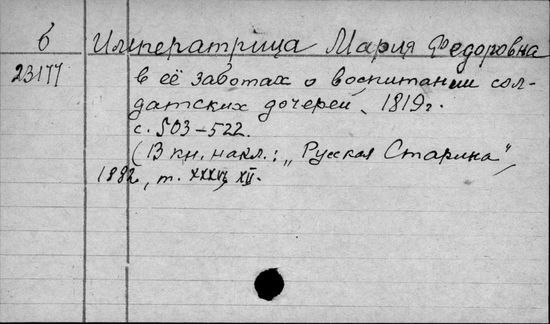 б
Императрица Мария Федоровна
23177
в её заботах о воспитании сол-
датских дочерей, 1819 г.
с. 503-522.
(В кн. накл.: „Русская Старина",
1882, т. XXXVI, XII.